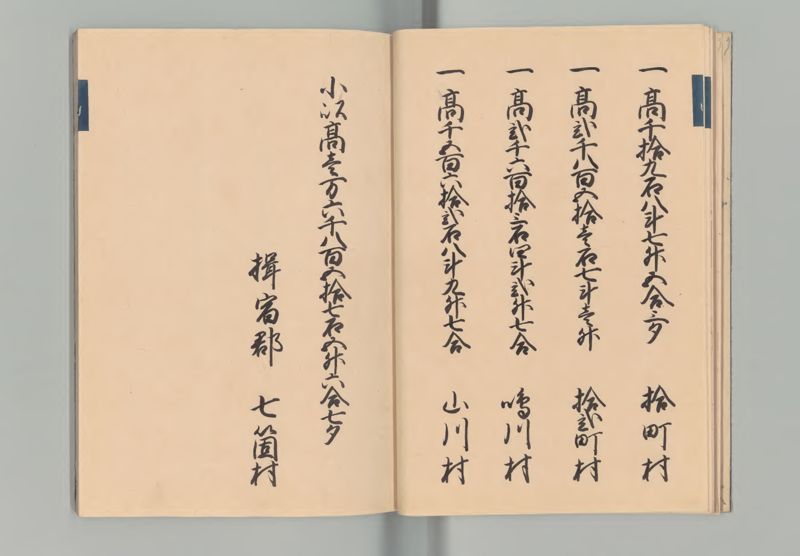 一高千拾九石八斗七升五合三夕 拾町村
一高弐千八百五拾壱石七斗壱升 拾弐町村
一高弐千六百拾三石四斗弐升七合 鳴川村
一高千五百六拾弐石八斗九升七合 山川村
小以高壱万六千八百五拾七石五升六合七夕
揖宿郡 七箇村